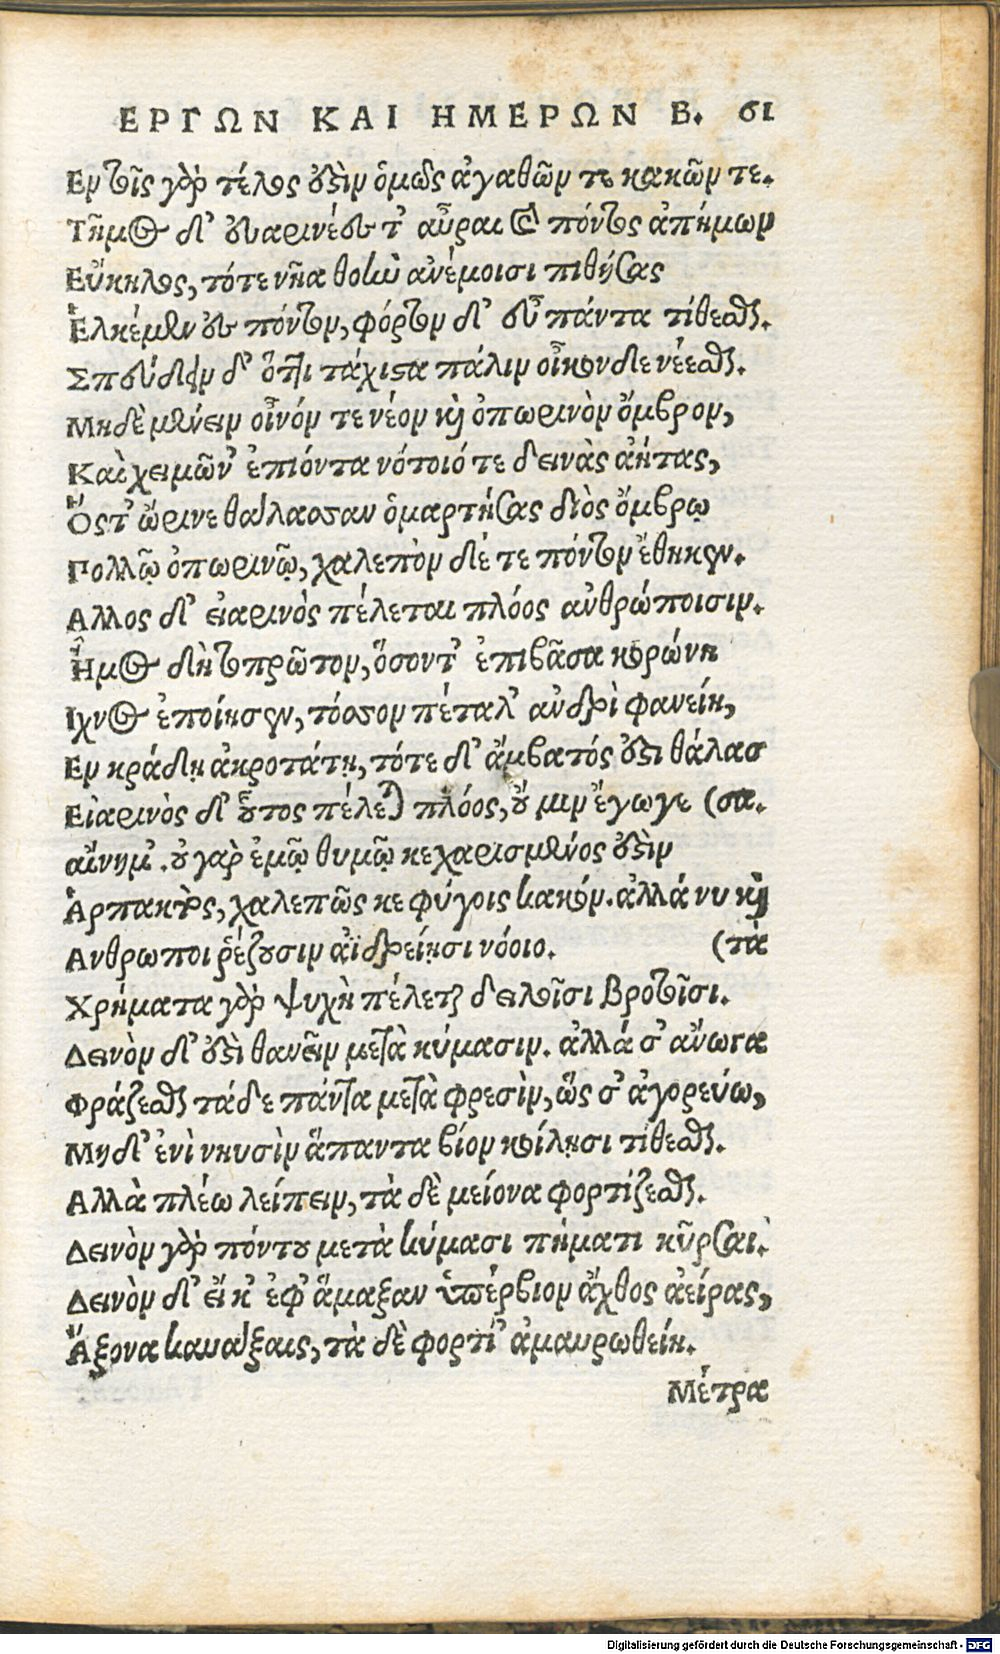 ΕΡΓΩΝ ΚΑΙ ΗΜΕΡΩΝ Β. 61
Εν τοῖς γὰρ τέλος ὅ̓ξὶν ὁμῶς ἀγαθῶν τε κακῶν τε.
Τῆμος δ' εὐκρινέες τ' αὖραι καὶ πόντος ἀπήμων
Εὔκηλος, τότε νῆα θοὴν ἀνέμοισι πιθήσας
Ἑλκέμεν ἐς πόντον, φόρτον δ' εὖ πάντα τίθεσθαι.
Σπεύδειν δ' ὅττι τάχιστα πάλιν οἶκον δε νέεσθαι.
Μηδὲ μένειν οἶνόν τε νέον καὶ ὀπωρινὸν ὄμβρον,
Καὶ χειμῶν' ἐπιόντα νότοιό τε δεινὰς ἀήτας,
Ὅς τ' ὤρινε θάλασσαν ὁμαρτήσας διὸς ὄμβρῳ
Πολλῷ ὀπωρινῷ, χαλεπὸν δέ τε πόντον ἔθηκεν.
Αλλος δ' εἰαρινὸς πέλεται πλόος ἀνθρώποισιν.
Ἦμος δὴ τοπρῶτον, ὅσον τ' ἐπιβᾶσα κορώνη
Ιχνος ἐποίησεν, τόσσον πέταλ' ἀνδρὶ φανείη,
Εν κράδῃ ἀκροτάτῃ, τότε δ' ἄμβατός ἐστι θάλασ
Εἰαρινὸς δ' οὗτος πέλεται πλόος, οὔ μιν ἔγωγε (σα.
αἴνημ'. οὐ γὰρ ἐμῷ θυμῷ κεχαρισμένος ἐστὶν
Ἁρπακτὸς, χαλεπῶς κε φύγοις κακόν. ἀλλά νυ καὶ
Ανθρωποι ῥέζουσιν ἀϊδρείῃσι νόοιο. (τὰ
Χρήματα γὰρ ψυχὴ πέλεται δειλοῖσι βροτοῖσι.
Δεινὸν δ' ἐστὶ θανεῖν μετὰ κύμασιν. ἀλλά σ' ἄνωγα
Φράζεσθαι τάδε πάντα μετὰ φρεσὶν, ὥς σ' ἀγορεύω,
Μηδ' ἐνὶ νηυσὶν ἅπαντα βίον κοίλῃσι τίθεσθαι.
Αλλὰ πλέω λείπειν, τὰ δὲ μείονα φορτίζεσθαι.
Δεινὸν γὰρ πόντου μετὰ κύμασι πήματι κῦρσαι.
Δεινὸν δ' εἴ κ' ἐφ' ἅμαξαν ὑπέρβιον ἄχθος ἀείρας,
Ἄξονα καυάξαις, τὰ δὲ φορτί' ἀμαυρωθείη.
Μέτρα
Digitalisierung gefördert durch die Deutsche Forschungsgemeinschaft - DFG